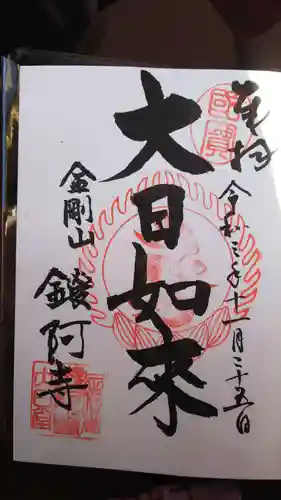 奉拝
国宝
令和三年十一月二十五日
大日如來
金剛山
鑁阿寺